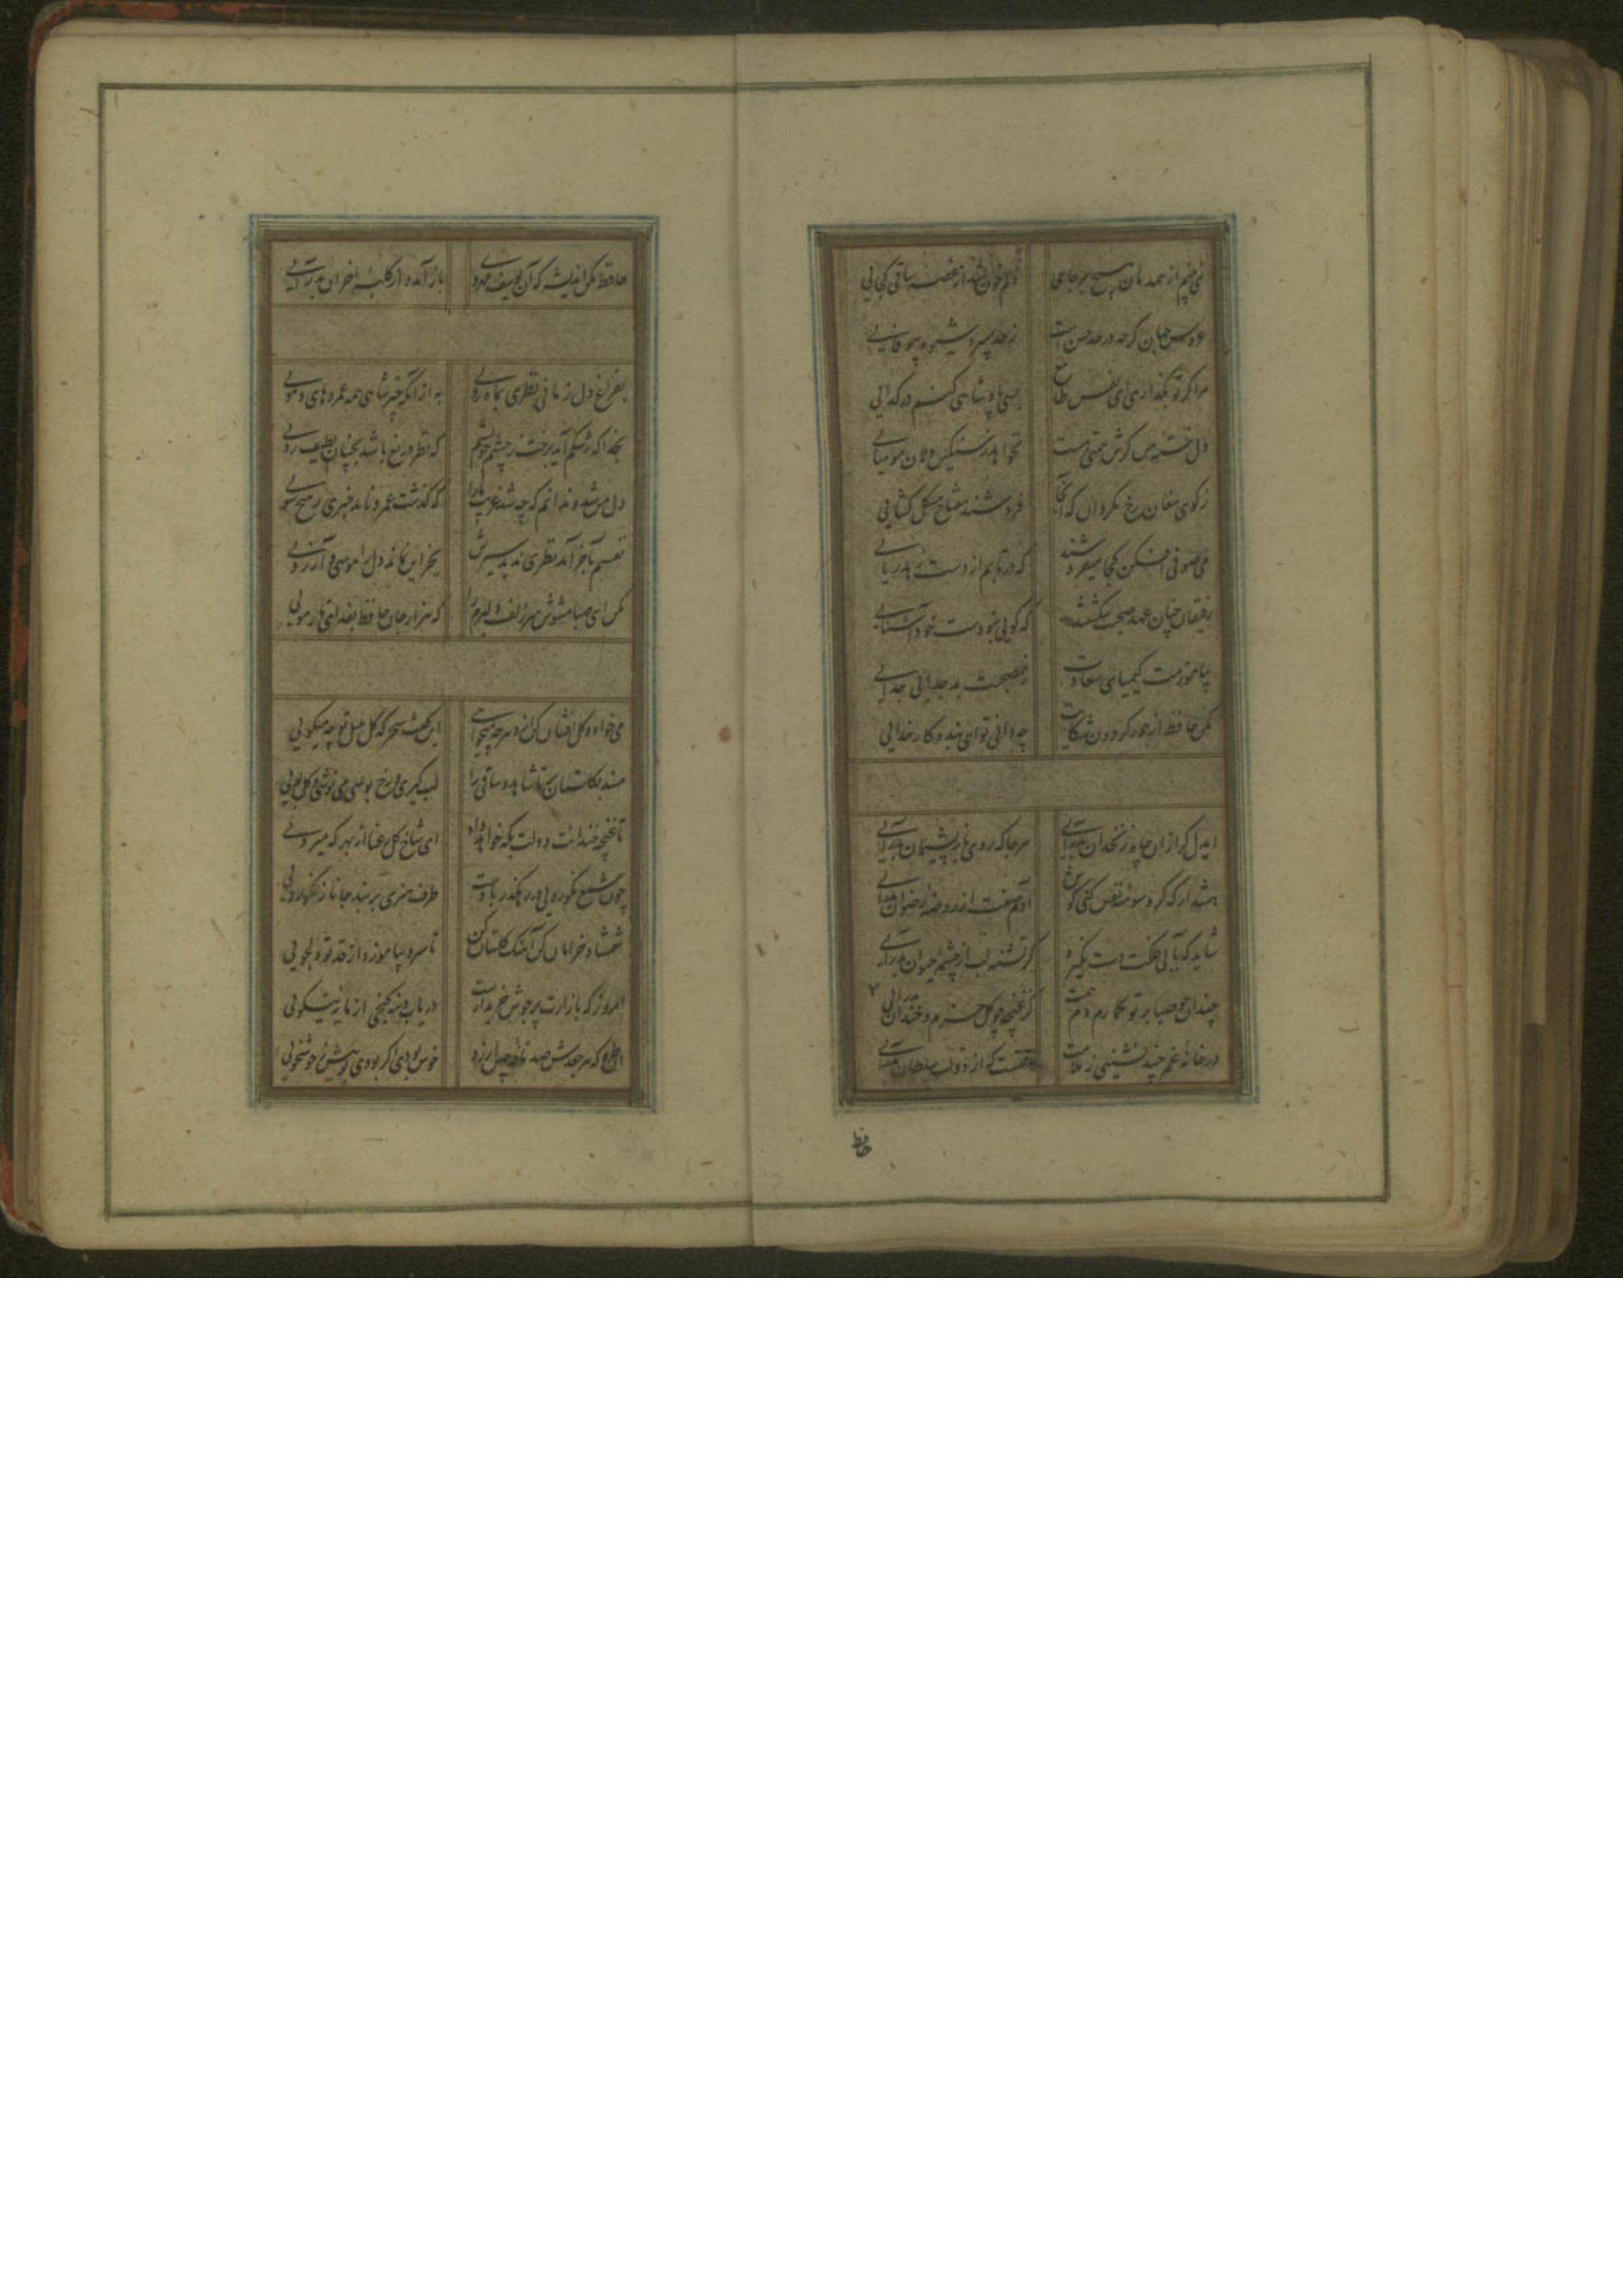 نمی بینم از همدمان هیچ بر جای دلم خون شد از غصه ساقی کجایی
عروس جهان گرچه در حد حسن است ز حد میبرد شیوه بیوفایی
مرا گر تو بگذاری ای نفس طامع بسی پادشاهی کنم در گدایی
دل خسته من گرش همتی هست نخواهد ز سنگین دلان مومیایی
ز کوی مغان رخ مگردان که آنجا فروشند مفتاح مشکل گشایی
می صوفی افکن کجا میفروشند که در تابم از دست زهد ریایی
رفیقان چنان عهد صحبت شکستند که گویی نبودست خود آشنایی
بیاموزمت کیمیای سعادت ز هم صحبت بد جدایی جدایی
مکن حافظ از جور گردون شکایت چه دانی تو ای بنده کار خدایی
ایدل گر از آن چاه زنخدان بدرآیی هر جا که روی باز پشیمان بدرآیی
هشدار که گر وسوسه نفس کنی گوش آدم صفت از روضه رضوان بدرآیی
شاید که به آبی فلکت دست نگیرد گر تشنه لب از چشمه حیوان بدرآیی
چندان چو صبا بر تو گمارم دم همت کز غنچه چو گل خرم و خندان بدرآیی
در خانه غم چند نشینی ز ملامت وقتست که از دولت سلطان بدرآیی
حافظ
حافظ مکن اندیشه که آن یوسف مهرو باز آید و از کلبه احزان بدرآیی
بفراغ دل زمانی نظری بماه رویی به از آنکه چتر شاهی همه عمر و های و هویی
بخدا که رشکم آید برخت ز چشم خویشم که نظر دریغ باشد بچنان لطیف رویی
دل من شد و ندانم که چه شد غریب ما را که گذشت عمر و نامد خبری ز هیچ سویی
نفسم بآخر آمد نظرم ندید سیرش بجز این نماند دل را هوسی و آرزویی
مکن ای صبا مشوش سر زلف دلبرم را که هزار جان حافظ بفدای تار مویی
می خواه و گل افشان کن از دهر چه میجویی این گفت سحرگه گل بلبل تو چه میگویی
مسند بگلستان بر تا شاهد و ساقی را لب گیری و رخ بوسی می نوشی و گل بویی
تا غنچه خندانت دولت بکه خواهد داد ای شاخ گل رعنا از بهر که میرویی
چون شمع نکورویی در رهگذر بادست طرف هنری بربند از شمع نکورویی
شمشاد خرامان کن آهنگ گلستان کن تا سرو بیاموزد از قد تو دلجویی
امروز که بازارت پر جوش خریدارست دریاب و بنه گنجی از مایه نیکویی
آن طره که هر جعدش صد نافه چین ارزد خوش بودی اگر بودی بوییش ز خوشخویی